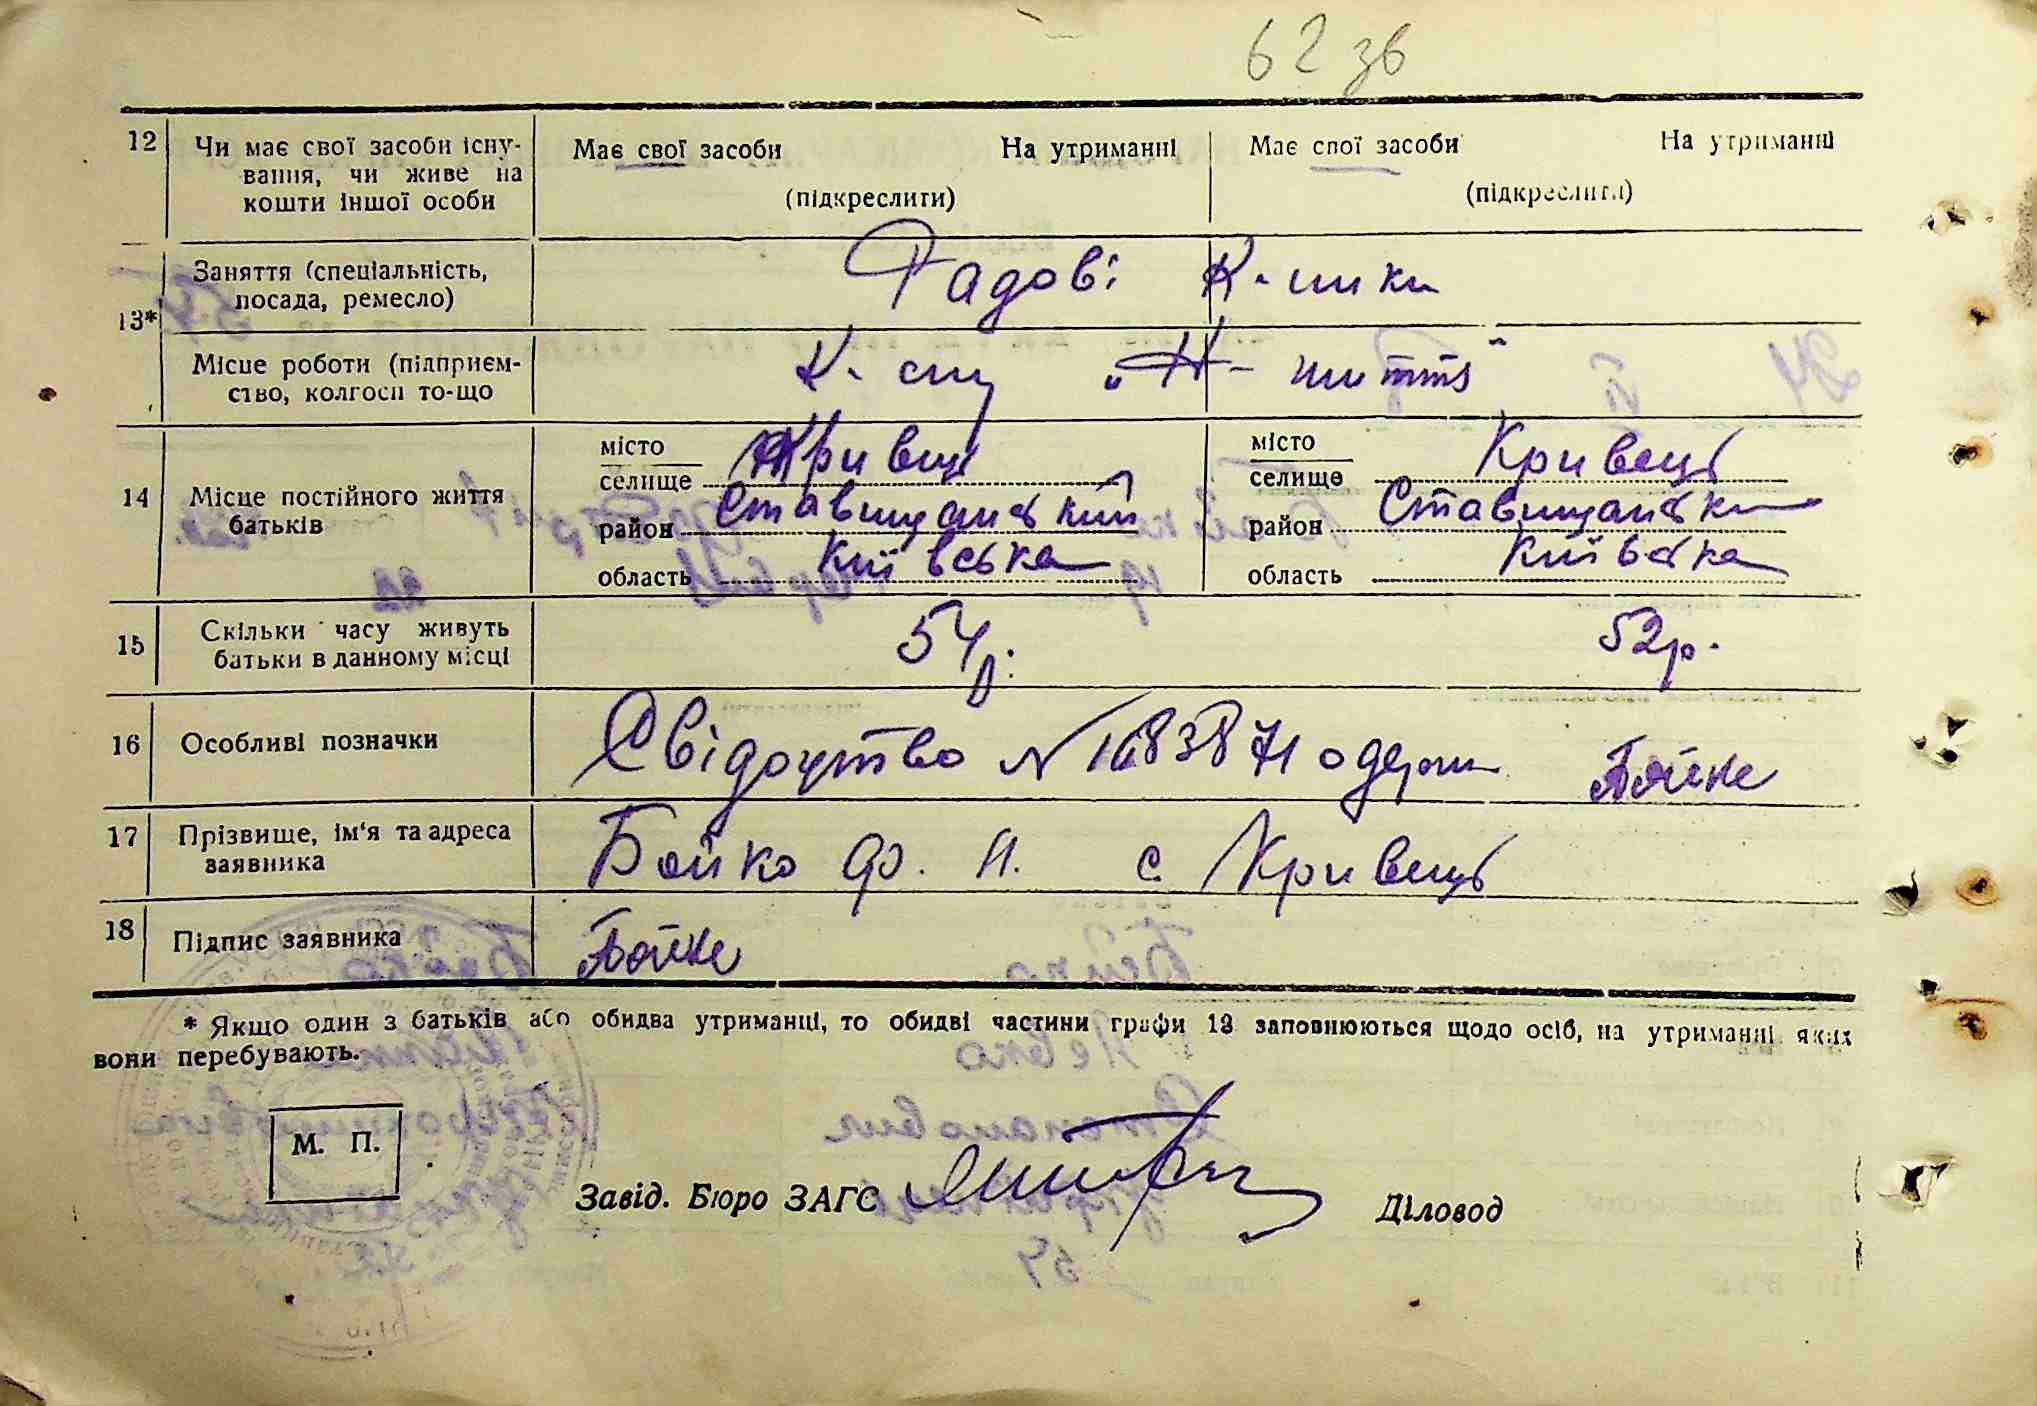 62 зв
12 Чи має свої засоби існу- Має свої засоби На утриманні Має свої засоби На утриманні
вання, чи живе на
кошти іншої особи (підкреслити) (підкреслити)
13* Заняття (спеціальність, Рядові к-ники
посада, ремесло)
Місце роботи (підприєм- К-сп „Н-життя"
ство, колгосп то-що
14 Місце постійного життя батьків місто Кривець місто Кривець
селище селище
район Ставищанський район Ставищанськи
область Київська область Київська
15 Скільки часу живуть 54 р. 52 р.
батьки в данному місці
16 Особливі позначки Свідоцтво № одерж Бойко
17 Прізвище, ім'я та адреса Бойко Ф. П. с. Кривець
заявника
18 Підпис заявника Бойко
* Якщо один з батьків або обидва утриманці, то обидві частини графи 13 заповнюються щодо осіб, на утриманні яких
вони перебувають.
М. П.
Завід. Бюро ЗАГС Діловод